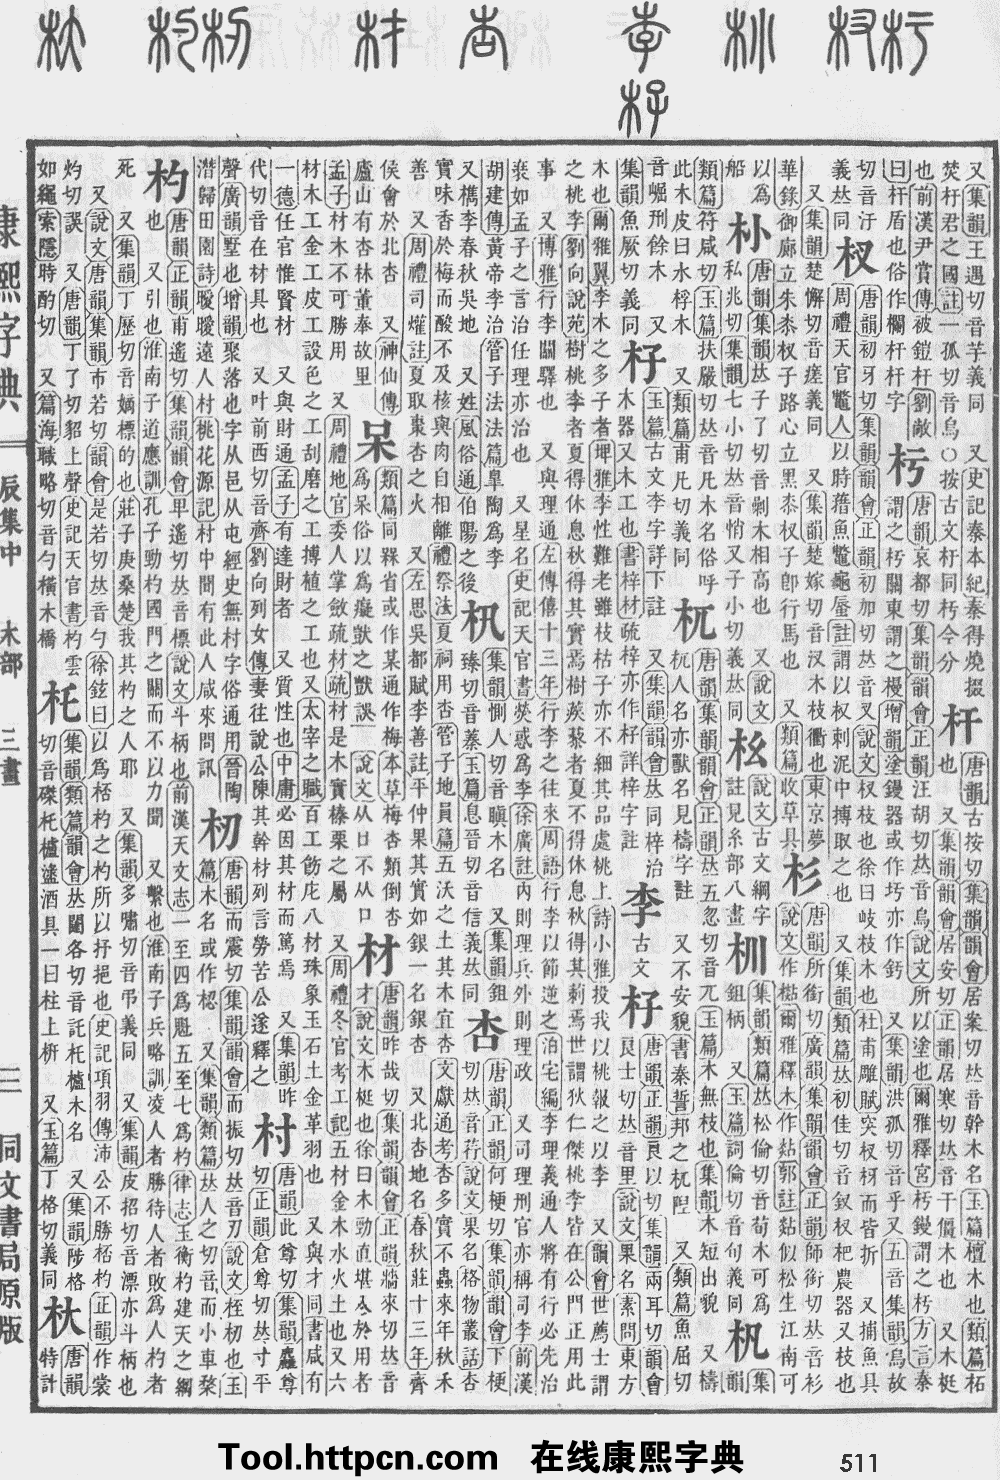 又集韻王遇切音芋義同　又史記秦本紀秦得燒掇
焚杅君之國註一孤切音烏○按古文杅同杇今分
杆
唐韻古按切集韻韻會居案切𠀤音幹木名玉篇檀木也類篇柘
也　又集韻韻會居安切正韻居寒切𠀤音干僵木也　又木梃
也前漢尹賞傳被鎧杆劉敞
曰杆盾也俗作欄杆杆字
杇
唐韻哀都切集韻韻會正韻汪胡切𠀤音烏說文所以塗也爾雅釋宮杇鏝謂之杇方言秦
謂之杇關東謂之槾增韻塗鏝器或作圬亦作釫　又集韻洪孤切音乎又五音集韻烏故
切音汙
杈
唐韻初牙切集韻韻會正韻初加切𠀤音叉說文杈枝也徐曰岐枝木也杜甫雕賦突杈枒而皆折　又捕魚具
周禮天官鼈人以時簎魚鼈龜蜃註謂以杈刺泥中搏取之也　又集韻類篇𠀤初佳切音釵杈杷農器又枝也
義𠀤同
又集韻楚懈切音瘥義同　又集韻楚嫁切音汊木枝衢也東京夢
華錄御廊立朱桼杈子路心立黑桼杈子卽行馬也　又類篇收草具
杉
唐韻所銜切廣韻集韻韻會正韻師銜切𠀤音衫
說文作𣠎爾雅釋木作𣏕郭註𣏕似松生江南可
以為
船
朴
唐韻集韻𠀤子了切音剿木相高也　又說文
私兆切集韻七小切𠀤音悄又子小切義𠀤同
松
說文古文綱字
註見糸部八畫
杊
集韻類篇𠀤松倫切音荀木可為
鉏柄　又玉篇詞倫切音句義同
杋
集
韻
類篇符咸切玉篇扶嚴切𠀤音凡木名俗呼
此木皮曰水桴木　又類篇甫凡切義同
杌
唐韻集韻韻會正韻𠀤五忽切音兀玉篇木無枝也集韻木短出貌　又檮
杌人名亦獸名見檮字註　又不安貌書秦誓邦之杌隉　又類篇魚屈切
音崛刑餘木　又
集韻魚厥切義同
杍
玉篇古文李字詳下註　又集韻韻會𠀤同梓治
木器又木工也書梓材疏梓亦作杍詳梓字註
李
古
文
杍
唐韻正韻良以切集韻兩耳切韻會
良士切𠀤音里說文果名素問東方
木也爾雅翼李木之多子者埤雅李性難老雖枝枯子亦不細其品處桃上詩小雅投我以桃報之以李　又韻會世薦士謂
之桃李劉向說苑樹桃李者夏得休息秋得其實焉樹蒺藜者夏不得休息秋得其刺焉世謂狄仁傑桃李皆在公門正用此
事　又博雅行李關驛也　又與理通左傳僖十三年行李之往來周語行李以節逆之泊宅編李理義通人將有行必先治
裝如孟子之言治任理亦治也　又星名史記天官書熒惑為李徐廣註內則理兵外則理政　又司理刑官亦稱司李前漢
胡建傳黃帝李治管子法法篇臯陶為李
又檇李春秋吳地　又姓風俗通伯陽之後
杒
集韻惻人切音瞋木名　又集韻鉏
臻切音蓁玉篇息晉切音信義𠀤同
杏
唐韻正韻何梗切集韻韻會下梗
切𠀤音荇說文果名格物叢話杏
實味香於梅而酸不及核與肉自相離禮祭法夏祠用杏管子地員篇五沃之土其木宜杏文獻通考杏多實不蟲來年秋禾
善　又周禮司爟註夏取棗杏之火　又左思吳都賦李善註平仲果其實如銀一名銀杏　又北杏地名春秋莊十三年齊
侯會於北杏　又神仙傳
廬山有杏林董奉故里
呆
類篇同槑省或作某通作梅本草梅杏類倒杏
為呆俗以為癡獃之獃誤　說文从口不从口
材
唐韻昨哉切集韻韻會正韻牆來切𠀤音
才說文木梃也徐曰木勁直堪入於用者
孟子材木不可勝用　又周禮地官委人掌斂疏材疏材是木實榛栗之屬　又周禮冬官考工記五材金木水火土也又六
材木工金工皮工設色之工刮磨之工搏植之工也又太宰之職百工飭庀八材珠象玉石土金革羽也　又與才同書咸有
一德任官惟賢材　又與財通孟子有達財者　又質性也中庸必因其材而篤焉　又集韻昨
代切音在材具也　又叶前西切音齊劉向列女傳妻往說公陳其幹材列言勞苦公遂釋之
村
唐韻此尊切集韻麤尊
切正韻倉尊切𠀤寸平
聲廣韻墅也增韻聚落也字从邑从屯經史無村字俗通用晉陶
潛歸田園詩曖曖遠人村桃花源記村中聞有此人咸來問訊
杒
唐韻而震切集韻韻會而振切𠀤音刃說文桎杒也玉
篇木名或作梕　又集韻類篇𠀤人之切音而小車棃
杓
唐韻正韻甫遙切集韻韻會卑遙切𠀤音標說文斗柄也前漢天文志一至四為魁五至七為杓律志玉衡杓建天之綱
也　又引也淮南子道應訓孔子勁杓國門之關而不以力聞　又繫也淮南子兵略訓凌人者勝待人者敗為人杓者
死　又集韻丁歷切音嫡標的也莊子庚桑楚我其杓之人耶　又集韻多嘯切音弔義同　又集韻皮招切音漂亦斗柄也
又說文唐韻集韻市若切韻會是若切𠀤音勺徐鉉曰以為栝杓之杓所以抒挹也史記項羽傳沛公不勝栝杓正韻作裳
灼切誤　又唐韻丁了切貂上聲史記天官書杓雲
如繩索隱時酌切　又篇海職略切音勺橫木橋
杔
集韻類篇韻會𠀤闥各切音託杔櫨木名　又集韻陟格
切音磔杔櫨盪酒具一曰柱上枅　又玉篇丁格切義同
杕
唐韻
特計
康熙字典
辰集中　木部　三畫
二
同文書局原版
Tool.httpcn.com　在线康熙字典
511